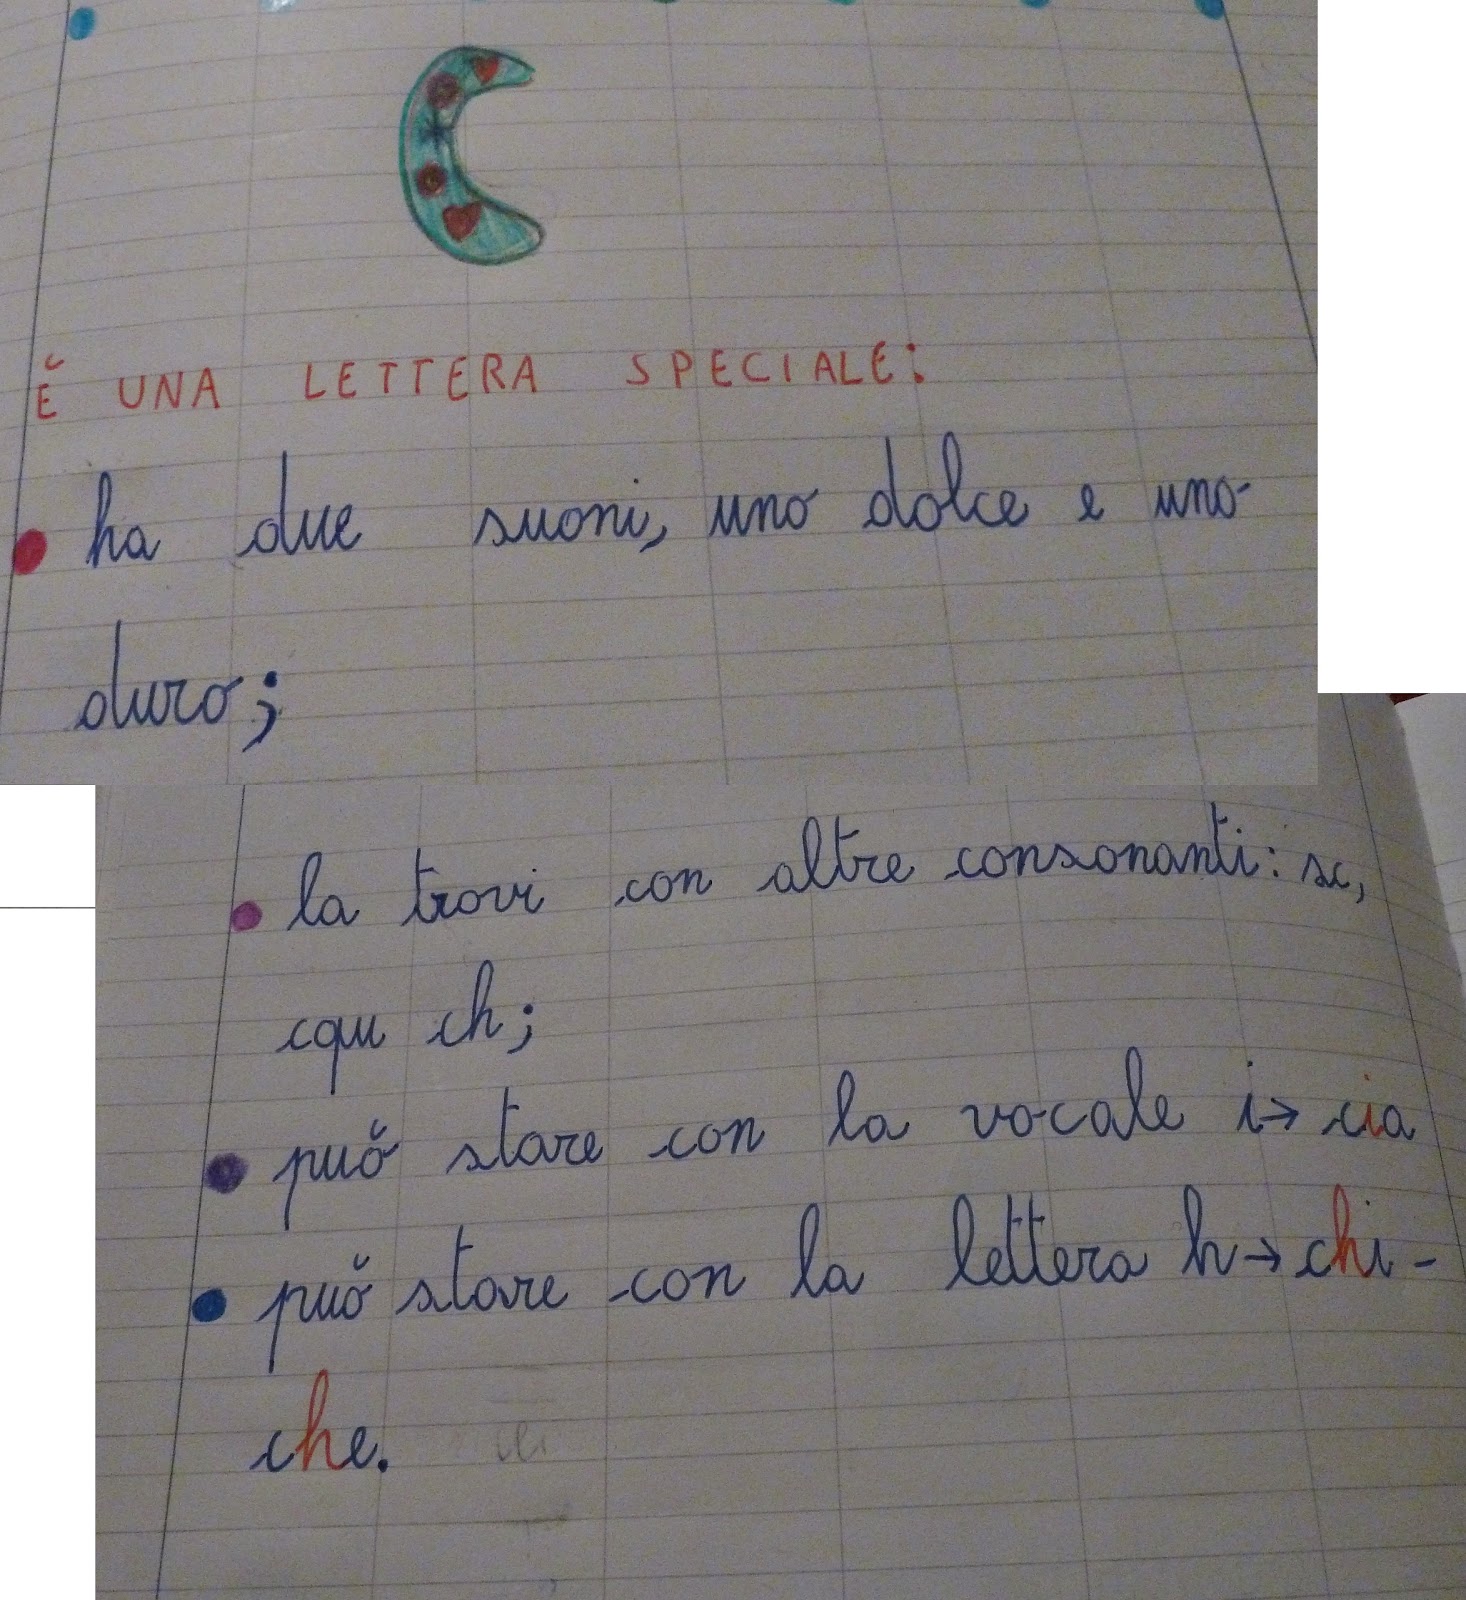 C
Ĕ UNA LETTERA SPECIALE:
ha due suoni, uno dolce e uno
duro;
la trovi con altre consonanti: sc,
cqu ch;
puŏ stare con la vocale i→ cia
puŏ stare con la lettera h→ chi-
che.